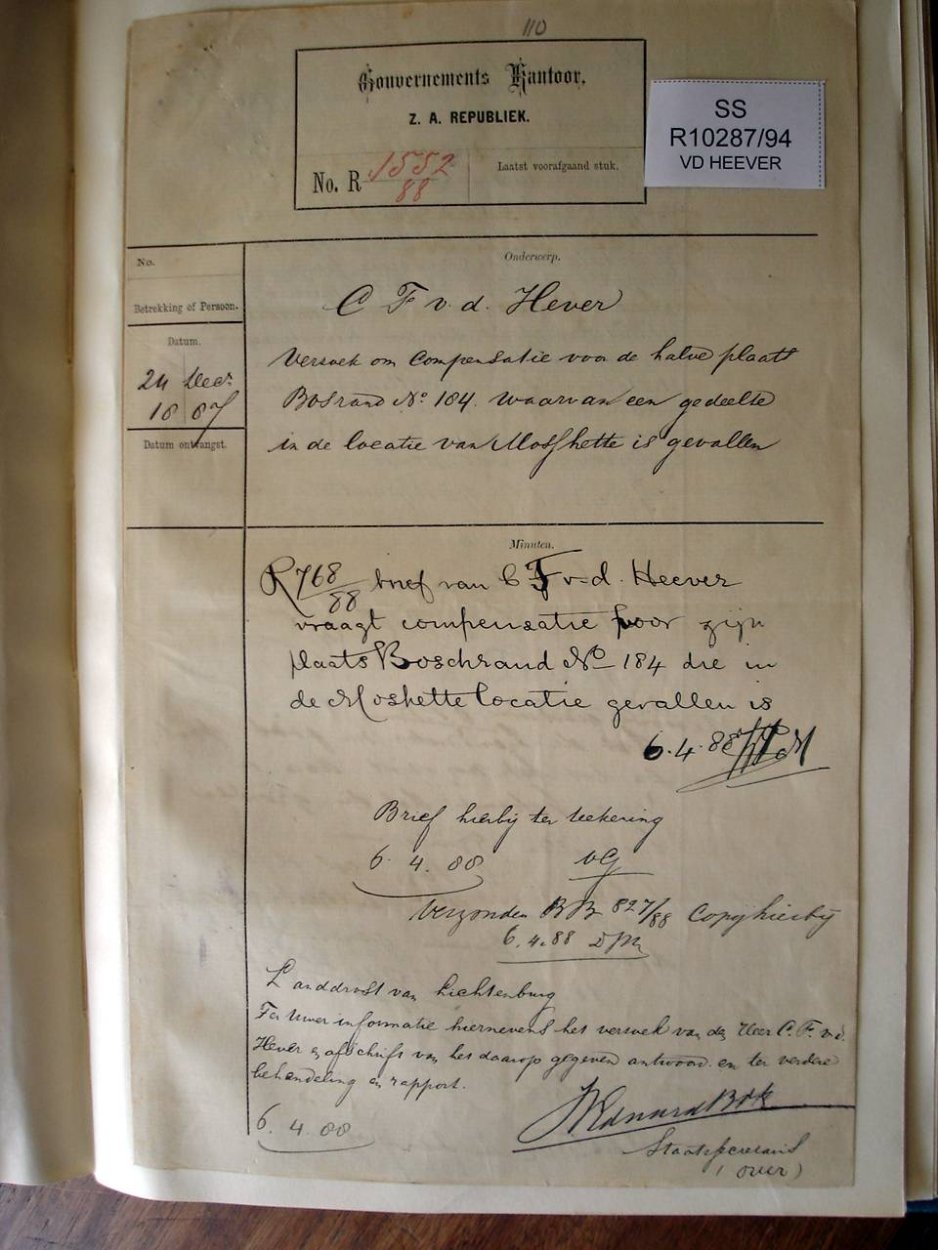 110
Gouvernements Kantoor,
Z. A. REPUBLIEK.
No. R 1552/88
Laatst voorafgaand stuk.
SS
R10287/94
VD HEEVER
No.
Betrekking of Persoon.
Datum.
24 Decr
1887
Datum ontvangst.
Onderwerp.
C F v. d. Hever
Versoek om Compensatie voor de halve plaats
Bosrand No. 184. waarvan een gedeelte
in de locatie van Mosshette is gevallen
Minuten.
R768/88 brief van C F v. d. Heever
vraagt compensatie voor zijn
plaats Boschrand No 184 die in
de Moshette locatie gevallen is
6.4.88
Brief hierbij ter teekening
6. 4. 88
Verzonden BB 827/88 Copy hierbij
6.4.88
Landdrost van Lichtenburg
Ter Uwer informatie hiernevens het versoek van den Heer C. F. v. d.
Hever & afschrift van het daarop gegeven antwoord en ter verdere
behandeling en rapport.
6. 4. 88
W Eduard Bok
Staatssecretaris
(over)